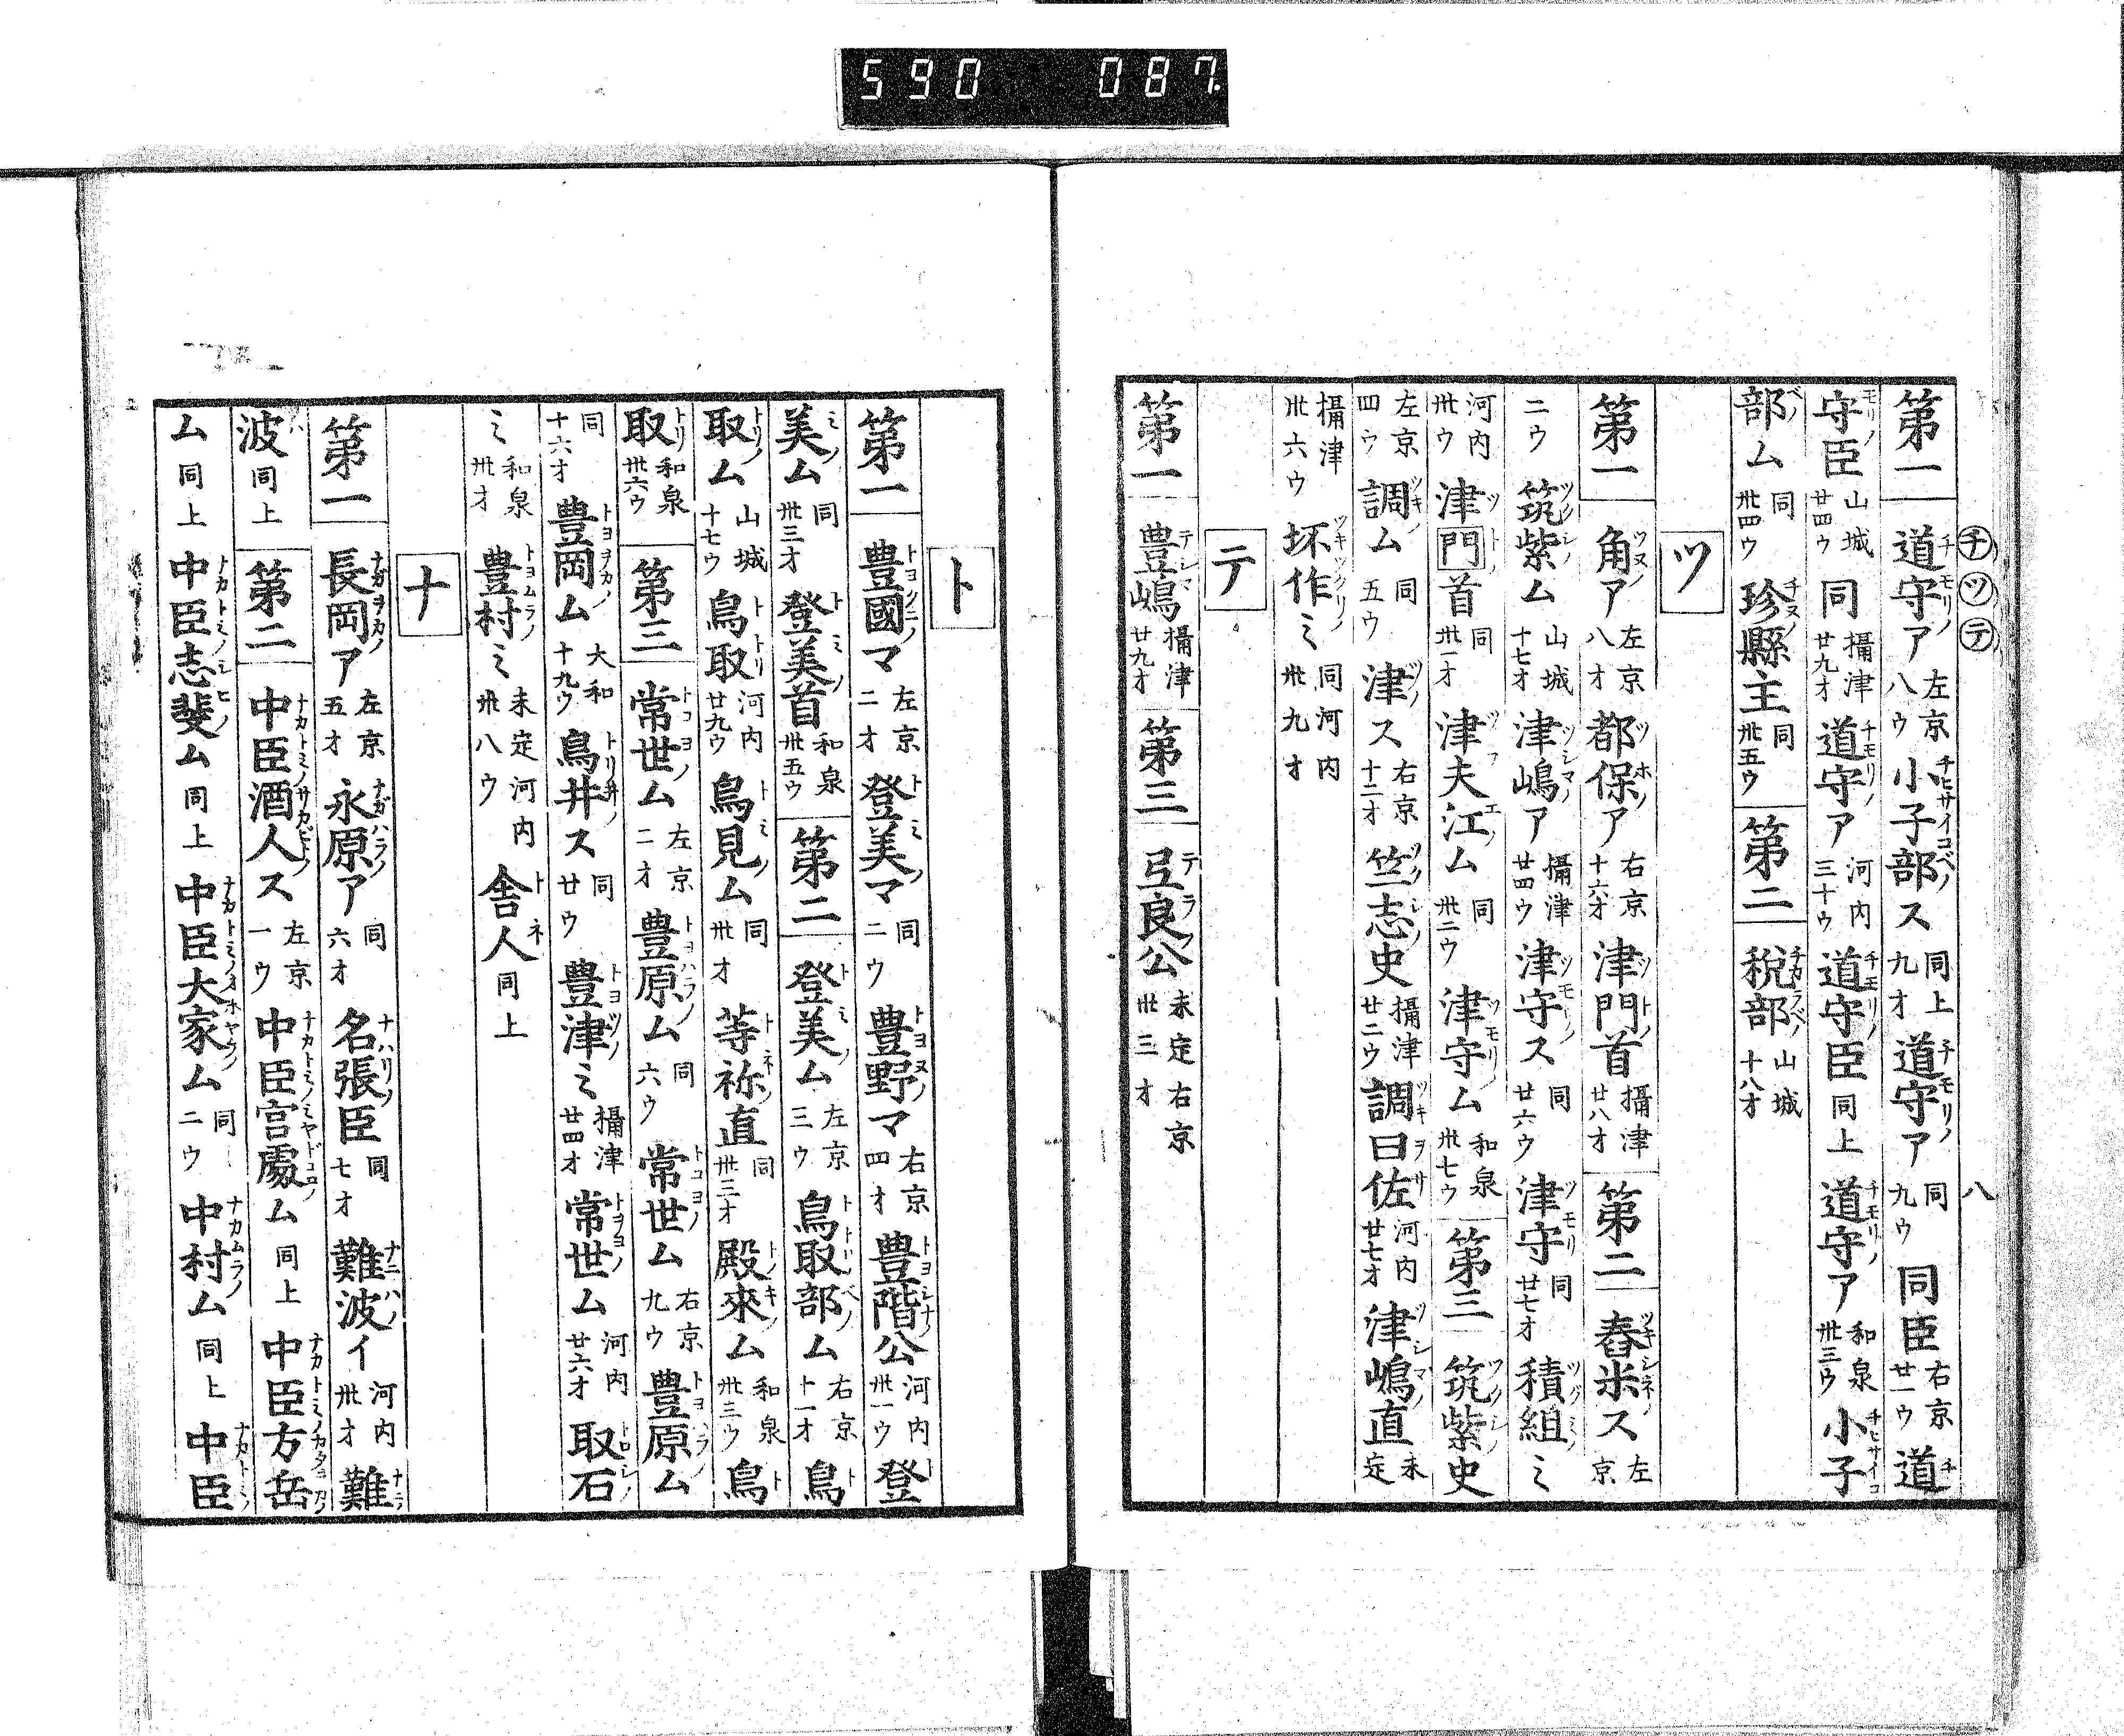 590 087.
チ ツ テ 八
第一 道守ア 左京八ウ 小子部ス 同上九オ 道守ア 同九ウ 同臣 右京廿一ウ 道
守臣 山城廿四ウ 同 攝津廿九オ 道守ア 河内三十ウ 道守臣 同上 道守ア 和泉卅三ウ 小子
部ム 同卅四ウ 珍縣主 同卅五ウ 第二 税部 山城十八オ
ツ
第一 角ア 左京八オ 都保ア 右京十六オ 津門首 攝津廿八オ 第二 舂米ス 左京
二ウ 筑紫ム 山城十七オ 津嶋ア 攝津廿四ウ 津守ス 同廿六ウ 津守 同廿七オ 積組ミ
河内卅ウ 津門首 同卅一オ 津夫江ム 同卅二ウ 津守ム 和泉卅七ウ 第三 筑紫史
左京四ウ 調ム 同五ウ 津ス 右京十二オ 竺志史 攝津廿二ウ 調曰佐 河内廿七オ 津嶋直 未定
攝津卅六ウ 坏作ミ 同河内卅九オ
テ
第一 豊嶋 攝津廿九オ 第三 弖良公 未定右京卅三オ
ト
第一 豊國マ 左京二オ 登美マ 同二ウ 豊野マ 右京四オ 豊階公 河内卅一ウ 登
美ム 同卅三オ 登美首 和泉卅五ウ 第二 登美ム 左京三ウ 鳥取部ム 右京十一オ 鳥
取ム 山城十七ウ 鳥取 河内廿九ウ 鳥見ム 同卅オ 等祢直 同卅三オ 殿來ム 和泉卅三ウ 鳥
取 和泉卅六ウ 第三 常世ム 左京二オ 豊原ム 同六ウ 常世ム 右京九ウ 豊原ム
同十六オ 豊岡ム 大和十九ウ 鳥井ス 同廿ウ 豊津ミ 攝津廿四オ 常世ム 河内廿六オ 取石
ミ 和泉卅オ 豊村ミ 未定河内卅八ウ 舎人 同上
ナ
第一 長岡ア 左京五オ 永原ア 同六オ 名張臣 同七オ 難波イ 河内卅オ 難
波 同上 第二 中臣酒人ス 左京一ウ 中臣宮處ム 同上 中臣方岳
ム 同上 中臣志斐ム 同上 中臣大家ム 同二ウ 中村ム 同上 中臣